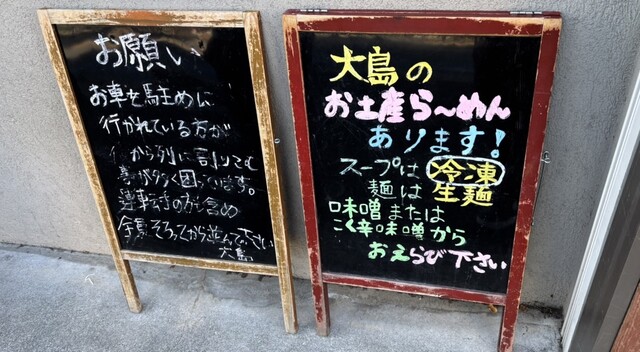 お願い
お車を駐めに
行かれている方が
後から列に割りこむ
事が多く困っています。
運転手の方も含め
全員そろってから並んで下さい
大島
大島の
お土産ら〜めん
あります!
スープは冷凍
麺は生麺
味噌または
こく辛味噌から
おえらび下さい